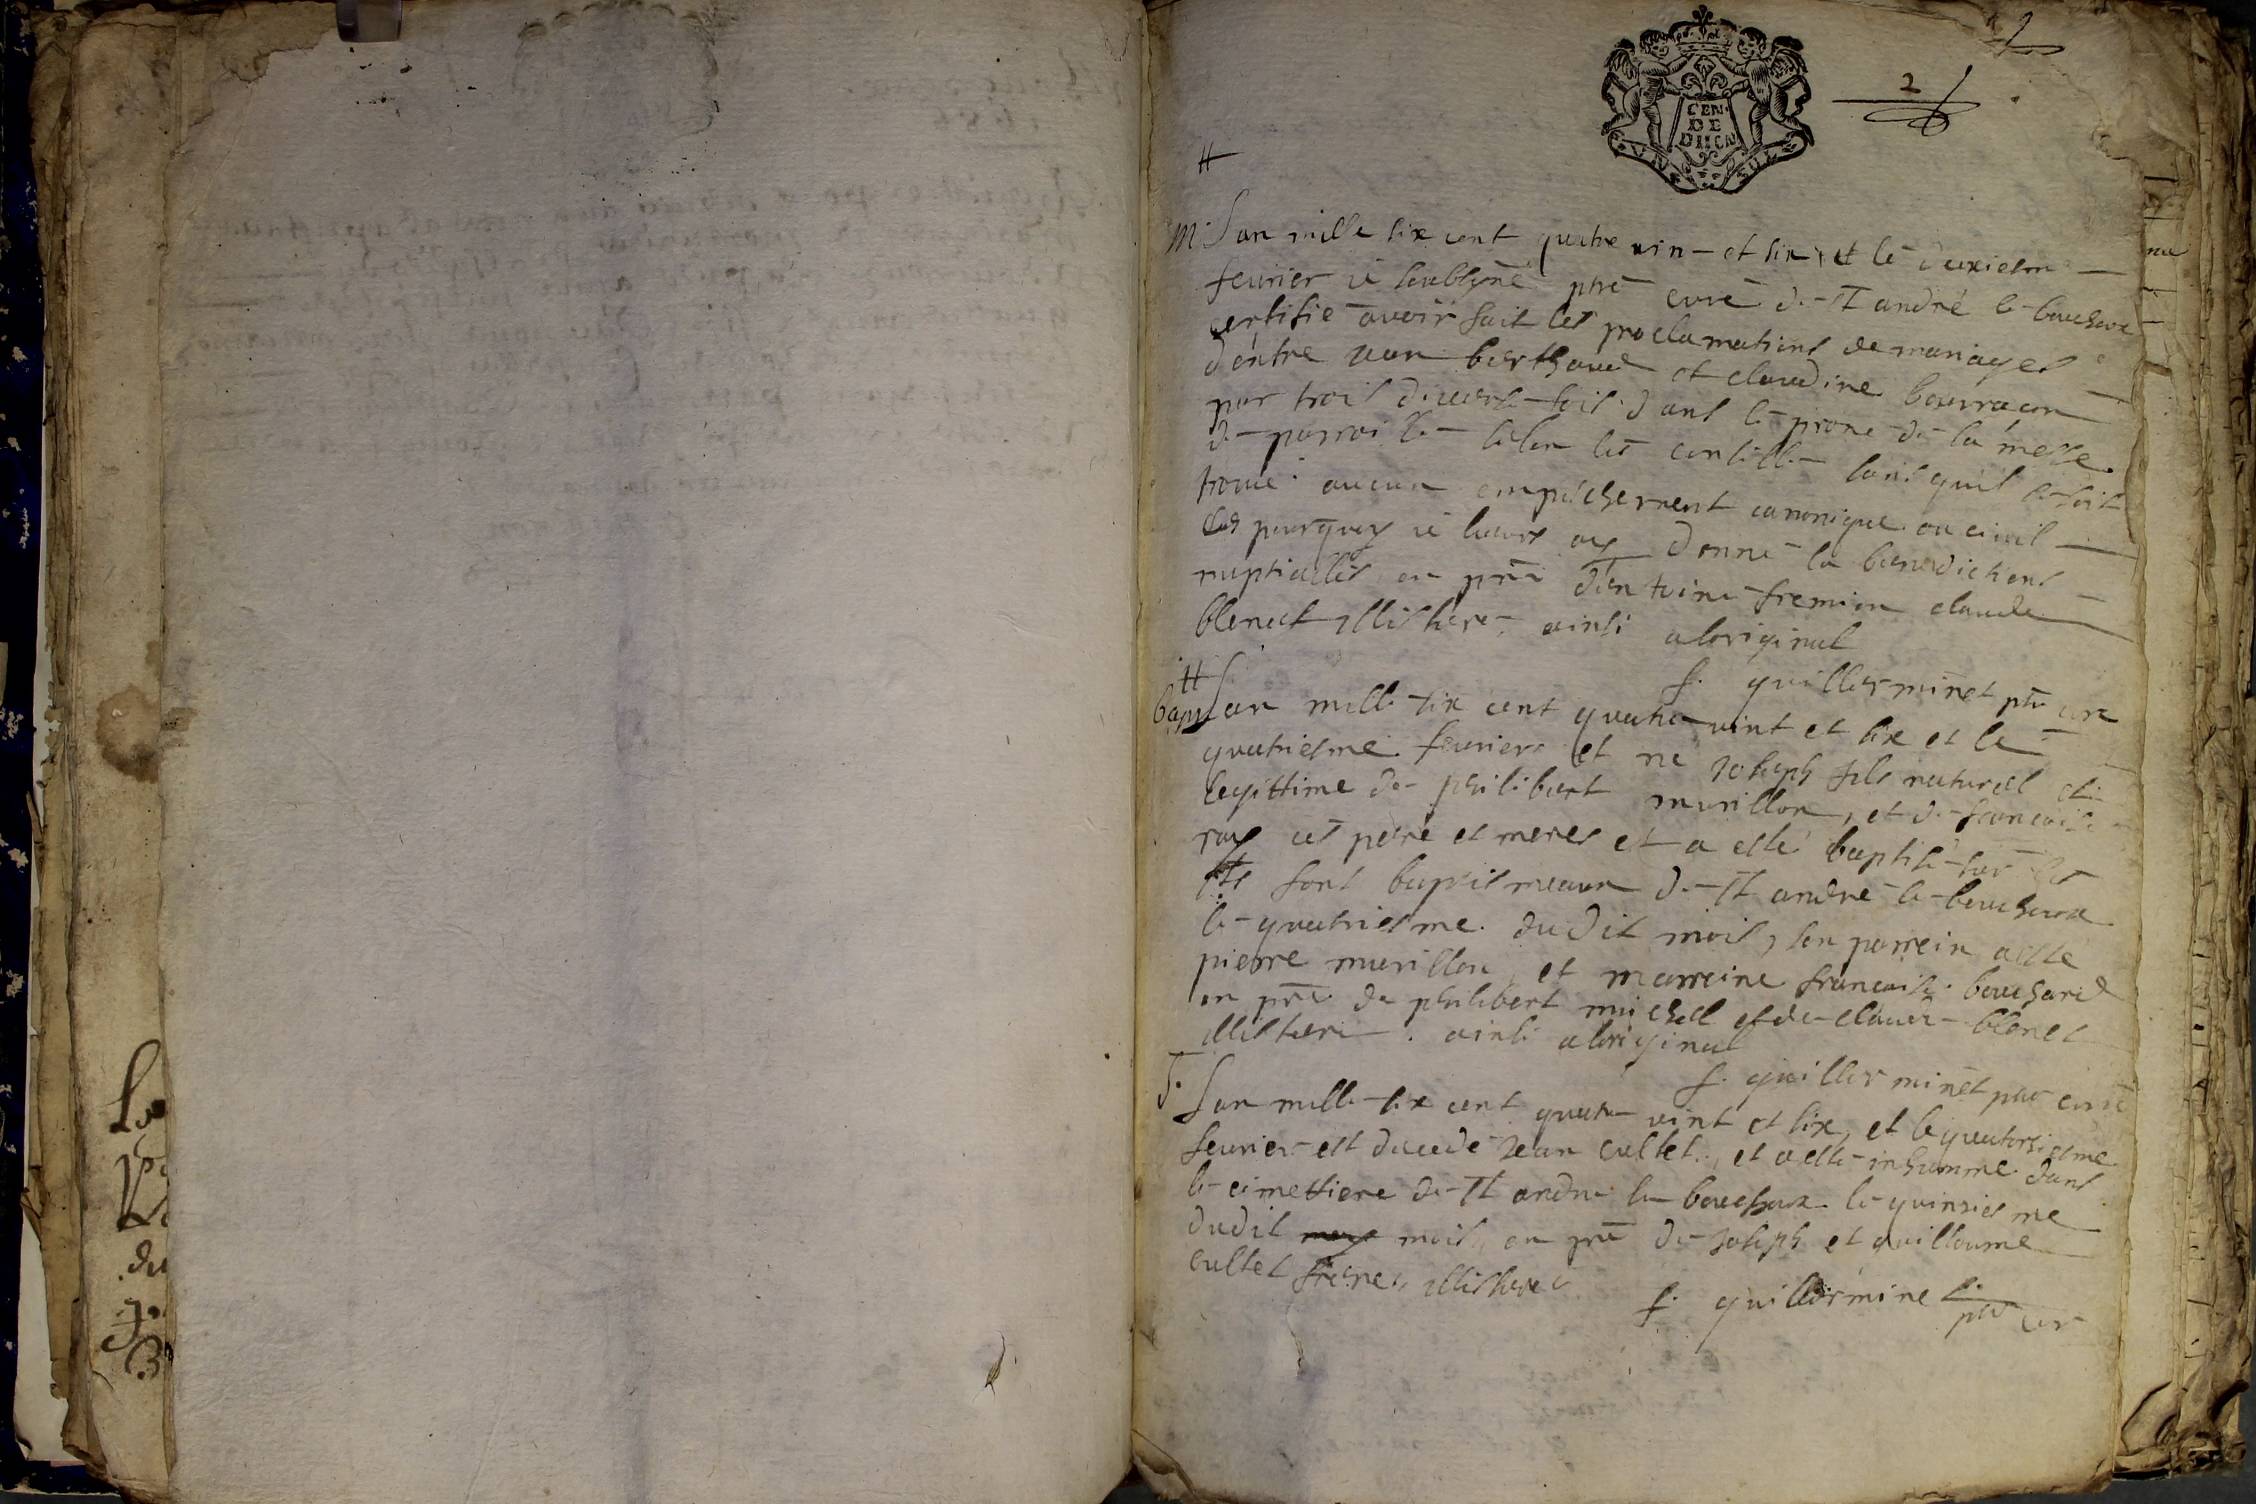 2
CEN.
DE
DIJON
UN SOL
m. Lan mille six cent quatre vin et six et le deuxiesm
feurier ie soubsigné ptre curé de st andré le bouchoux
certifie avoir fait les proclamations de mariages
dentre jean berthaud et claudine bourracon
par trois diverse fois dans le prone de la messe
de parroisse selon les concille sans quil se soit
trouué aucun empéchement canonique ou civil
pourquoy ie leurs ay donné la benedictions
nuptialles en pñce dentoine fremion claude
blenet illiteres ainsi a loriginal
f. guillerminet ptre cure
bap Lan mille six cent quatre vint et six et le
quatriesme feurier et né joseph fils naturel et
legittime de philibert murillon, et de francoise
roy ces pere et meres et a esté baptisé sur les
fons baptismeaux de st andré le bouchoux
le quatriesme dudit mois, son parrein a esté
pierre murillon, et marreine francoise bouchard
en pñce de philibert michell et de claude blenet
illiteres. ainsi a loriginal
f. guillerminet ptre curé
Lan mille six cent quatre vint et six, et le quatorsiesme
feurier est decede jean cultet, et a esté inhummé dans
le cimettiere de st andre le bouchoux le quinsiesme
dudit mois, en pñce de joseph et guilloume
cultet freres, illiteres
f. guillerminet
ptre cur
Lo
du